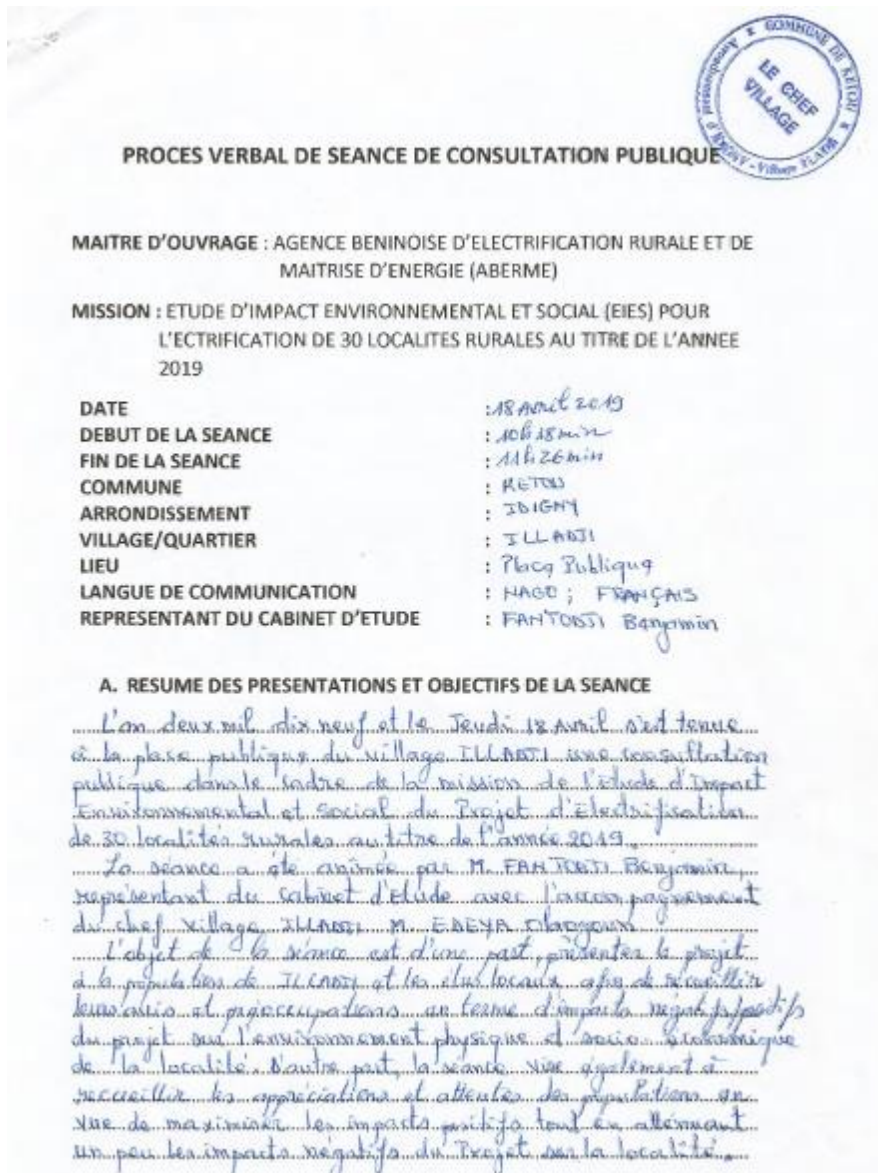 COMMUNE DE KETOU
Arrondissement d'IDIGNY - Village ILLADJI
LE CHEF
VILLAGE
PROCES VERBAL DE SEANCE DE CONSULTATION PUBLIQUE
MAITRE D'OUVRAGE : AGENCE BENINOISE D'ELECTRIFICATION RURALE ET DE
MAITRISE D'ENERGIE (ABERME)
MISSION : ETUDE D'IMPACT ENVIRONNEMENTAL ET SOCIAL (EIES) POUR
L'ECTRIFICATION DE 30 LOCALITES RURALES AU TITRE DE L'ANNEE
2019
DATE : 18 Avril 2019
DEBUT DE LA SEANCE : 10h18min
FIN DE LA SEANCE : 11h26min
COMMUNE : KETOU
ARRONDISSEMENT : IDIGNY
VILLAGE/QUARTIER : ILLADJI
LIEU : Place Publique
LANGUE DE COMMUNICATION : NAGO ; FRANÇAIS
REPRESENTANT DU CABINET D'ETUDE : FANTODJI Benjamin
A. RESUME DES PRESENTATIONS ET OBJECTIFS DE LA SEANCE
L'an deux mil dix neuf et le Jeudi 18 Avril s'est tenue
à la place publique du village ILLADJI une consultation
publique dans le cadre de la mission de l'Etude d'Impact
Environnemental et Social du Projet d'Electrification
de 30 localités rurales au titre de l'année 2019.
La séance a été animée par M. FANTODJI Benjamin,
représentant du Cabinet d'Etude avec l'accompagnement
du chef village ILLADJI M. EDEYA
L'objet de la séance est d'une part, présenter le projet
à la population de ILLADJI et les élus locaux afin de recueillir
leurs avis et préoccupations en terme d'impacts négatifs/positifs
du projet sur l'environnement physique et socio-économique
de la localité. D'autre part, la séance vise également à
recueillir les appréciations et attentes des populations en
vue de maximiser les impacts positifs tout en atténuant
un peu les impacts négatifs du Projet sur la localité.